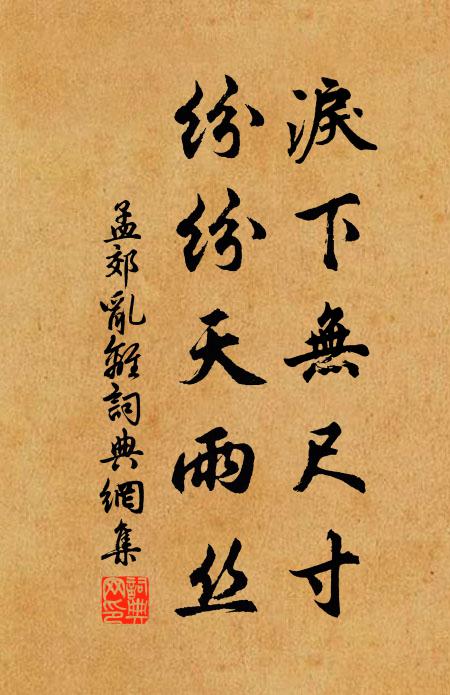 淚下無尺寸
紛紛天雨丝
孟郊亂離詞典網集
詞典網印